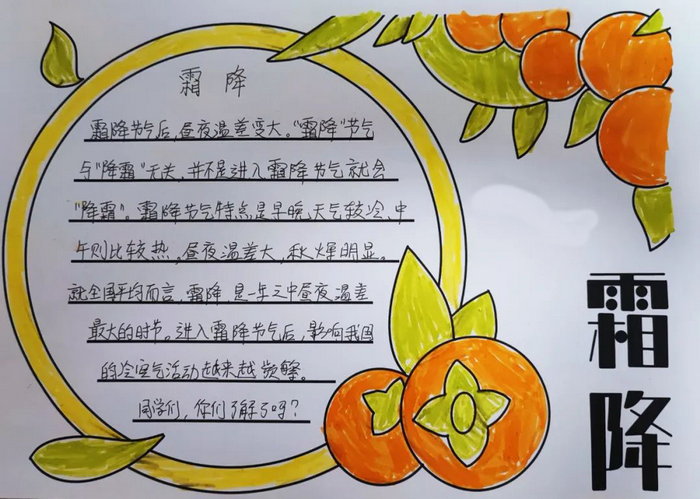 霜降
霜降节气后,昼夜温差变大。“霜降”节气
与“降霜”无关,并不是进入霜降节气就会
“降霜”。霜降节气特点是早晚天气较冷、中
午则比较热,昼夜温差大,秋燥明显。
就全国平均而言,霜降是一年之中昼夜温差
最大的时节。进入霜降节气后,影响我国
的冷空气活动越来越频繁。
同学们,你们了解了吗?
霜降